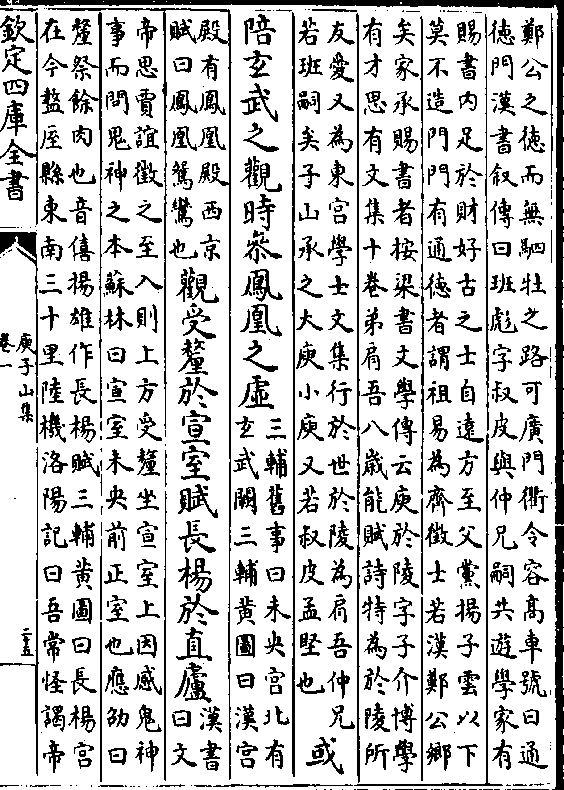 鄭公之徳而無駟牡之路可廣門衢令容髙車號曰通
徳門漢書叙傳曰班彪字叔皮與仲兄嗣共遊學家有
賜書内足於財好古之士自遠方至父黨揚子雲以下
莫不造門門有通徳者謂祖易為齊徴士若漢鄭公鄉
矣家承賜書者按梁書文學傳云庾於陵字子介博學
有才思有文集十卷弟肩吾八歳能賦詩特為於陵所
友愛又為東宫學士文集行於世於陵為肩吾仲兄
若班嗣矣子山承之大庾小庾又若叔皮孟堅也
或
陪玄武之觀時叅鳳凰之虚
三輔舊事曰未央宫北有
玄武闕三輔黄圖曰漢宫
殿有鳳凰殿西京
賦曰鳳凰鴛鸞也
觀受釐於宣室賦長楊於直廬
漢書
曰文
帝思賈誼徴之至入則上方受釐坐宣室上因感鬼神
事而問鬼神之本蘇林曰宣室未央前正室也應劭曰
釐祭餘肉也音僖揚雄作長楊賦三輔黄圖曰長楊宫
在今盩厔縣東南三十里陸機洛陽記曰吾常怪謁帝
欽定四庫全書
庾子山集
卷一
二十五